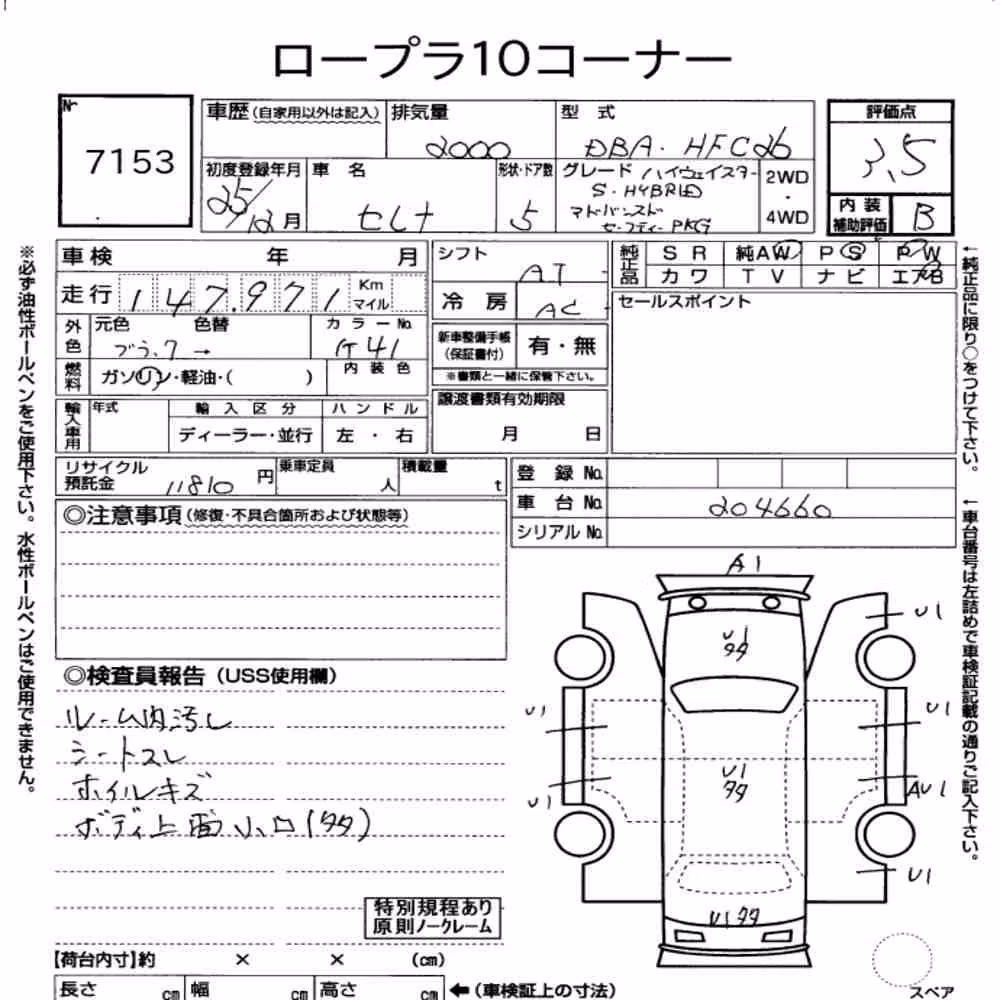 ロープラ10コーナー
№
7153
車歴(自家用以外は記入)
排気量
2000
型 式
DBA・HFC26
評価点
3.5
初度登録年月
25/12月
車 名
セレナ
形状・ドア数
5
グレード ハイウェイスター
S・HYBRID
アドバンスド
セーフティー PKG
2WD
・
4WD
内 装
補助評価
B
車検 年 月
走行 147,971 Km
マイル
シフト
AT
冷 房
AC
純正品
S R 純AW P S P W
カワ T V ナビ エアB
セールスポイント
外色
元色 色替
ブラック →
カラーNo.
G41
新車整備手帳
(保証書付)
有・無
※書類と一緒に保管下さい。
燃料
ガソリン・軽油・( )
内 装 色
譲渡書類有効期限
月 日
輸入車用
年式
輸 入 区 分
ハ ン ド ル
ディーラー・並行
左 ・ 右
リサイクル
預託金
11810 円
乗車定員
人
積載量
t
登 録 No.
車 台 No.
204660
シリアル No.
◎注意事項(修復・不具合箇所および状態等)
◎検査員報告(USS使用欄)
ルーム内汚し
シートスレ
ホイルキズ
ボディ上面小凹(タタ)
特別規程あり
原則ノークレーム
【荷台内寸】約 × × (cm)
長さ cm 幅 cm 高さ cm
←(車検証上の寸法)
A1
U1
U1
タタ
U1
U1
U1
タタ
U1
AU1
U1
U1タタ
スペア
※必ず油性ボールペンをご使用下さい。水性ボールペンはご使用できません。
←純正品に限り○をつけて下さい。
←車台番号は左詰めで車検証記載の通りご記入下さい。